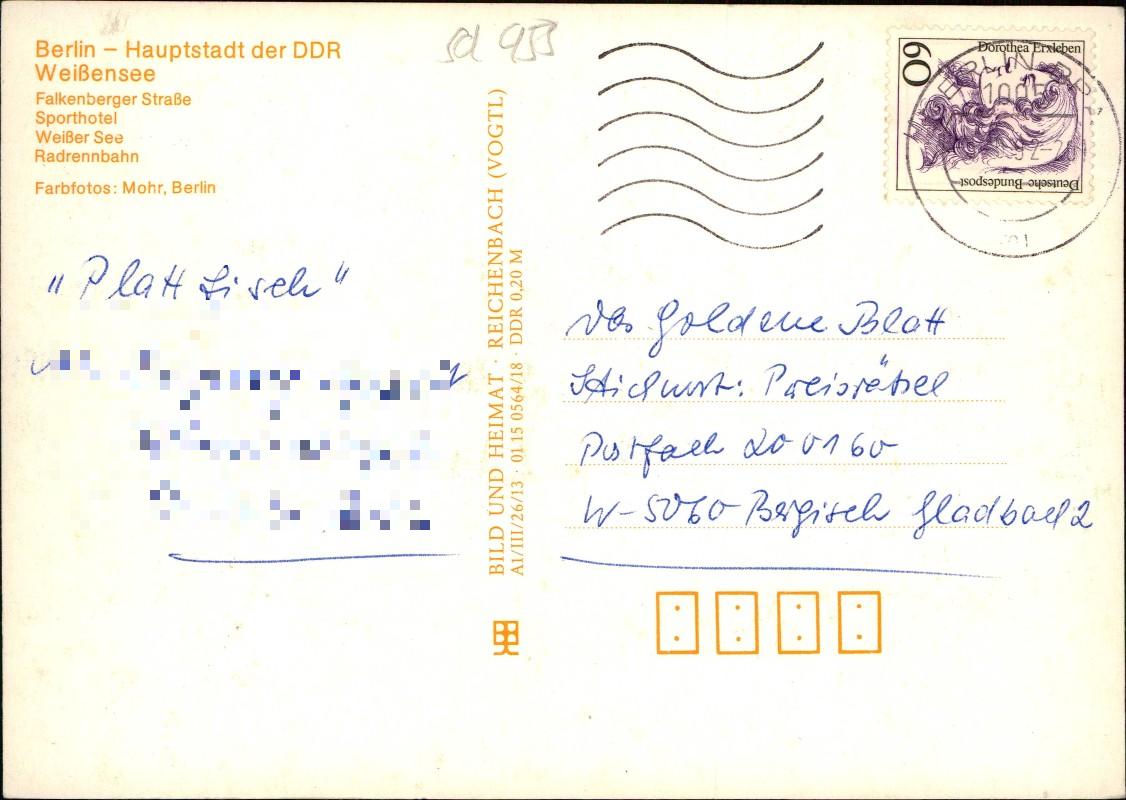 Berlin – Hauptstadt der DDR
Weißensee
Falkenberger Straße
Sporthotel
Weißer See
Radrennbahn
Farbfotos: Mohr, Berlin
"Plattfisch"
BILD UND HEIMAT · REICHENBACH (VOGTL)
A1/III/26/13 · 01 15 0564/18 · DDR 0,20 M
60
Dorothea Erxleben
Deutsche Bundespost
BERLIN
Das Goldene Blatt
Stichwort: Preisrätsel
Postfach 20 01 60
W-5060 Bergisch Gladbach 2